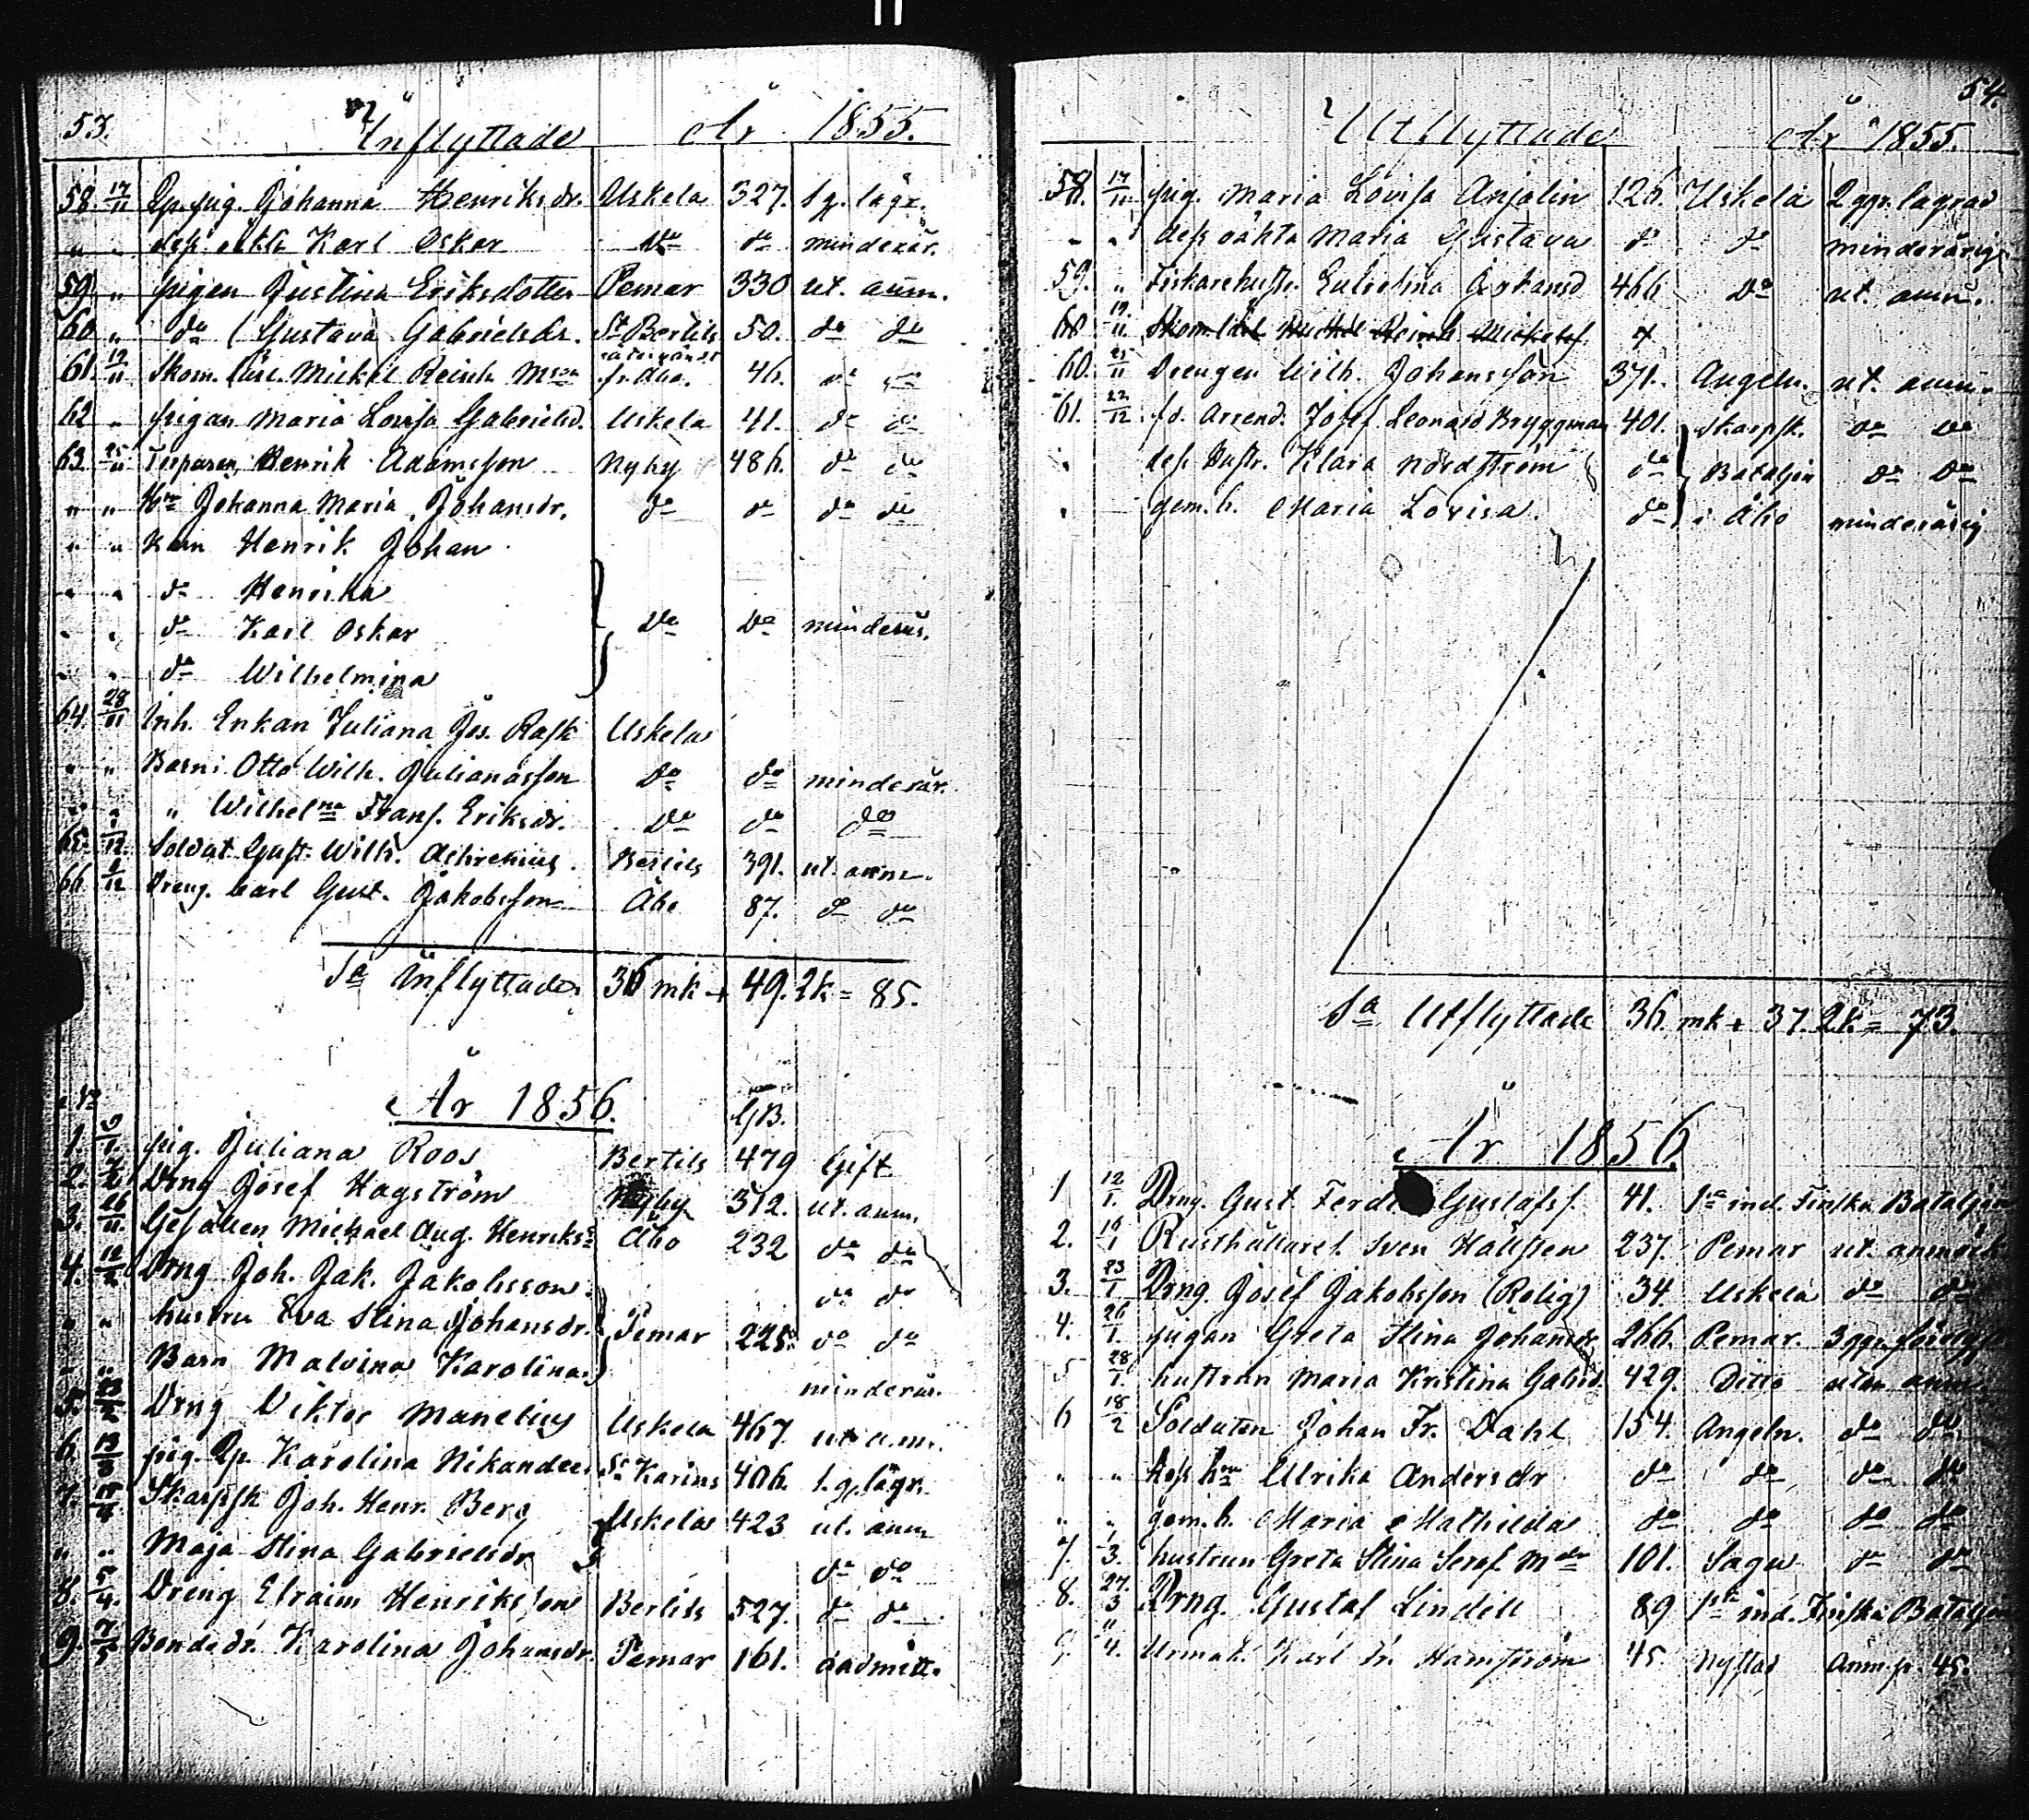 53. Inflyttade År 1855.
58. 17/11 Qp. pig. Johanna Henriksdr. Uskela 327. 1 g. lägr.
" " dess oäkta Karl Oskar do do minderår.
59. " pigan Justina Eriksdotter Pemar 330 ut. anm.
60 " do Gustava Gabrielsdr. St Bertils 50. do do
61. 19/11 Skom. lärl. Mickel Reinh. Mson fr. Åbo. 46. do do
62 " pigan Maria Lovisa Gabrielsd. Uskela 41. do do
63 25/11 Torparen Henrik Adamsson Nyby 486. do do
" " Hu Johanna Maria Johansdr. do do do do
" " Barn Henrik Johan
" " do Henrika
" " do Karl Oskar do do minderår.
" " do Wilhelmina
64. 28/11 Inh. Enkan Juliana Jos. Rask Uskela
" " Barn: Otto Wilh. Julianasson do do minderår.
" " " Wilhelmna Frans. Eriksdr. do do do
65. /12 Soldat Gust. Wilh. Achrenius Bertils 391. ut. anm.
66 /12 Dreng. Carl Gust. Jakobsson Åbo 87. do do
Sa Inflyttade 36 mk + 49. 2k = 85.
No År 1856. GB.
1. pig. Juliana Roos Bertils 479 Gift
2. Drng Josef Hagström Nyby 312. ut. anm.
3. Gesällen Michael Aug. Henrikss Åbo 232 do do
4. 12/2 Drng Joh. Jak. Jakobsson do do
" " hustru Eva Stina Johansdr. Pemar 225. do do
" " Barn Malvina Karolina minderår.
5. Drng Viktor Manelius Uskela 467 ut a.m.
6. 13/3 pig. Qp. Karolina Nikander St Karins 406. 1. g. lägr.
7. Skarpsk Joh. Henr. Berg Uskela 423 ut. anm
" " Maja Stina Gabrielsdr do do
8. 5/4 Dreng Efraim Henriksson Bertils 527. do do
9. 7/5 Bondedr. Karolina Johansdr. Pemar 161. oadmitt.
54.
Utflyttade År 1855.
58. 17/11 pig. Maria Lovisa Anjelin 126. Uskela 2 ggr. lägrad
" " dess oäkta Maria Gustava do do minderårig
59. " Fiskarehustr. 466 do ut. anm.
60 19/11 Skom. lärl. Mickel Reinh. Mickelss.
60. 25/11 Drengen Wilh. Johansson 371. Angeln. ut. anm.
61. 22/12 fd. Arrend. Josef Leonard Bryggman 401. skarpsk. do do
" des. Hustr. Klara Nordström do Bataljon do do
" gem. b. Maria Lovisa do i Åbo minderårig
Sa Utflyttade 36. mk + 37. 2k = 73.
År 1856
1 12/1. Drng. Gust. Ferd. Gustafss. 41. 1sta ind. Finska Bataljon
2. 19/1 Rusthållares. Sven Hallsten 237. Pemar ut. anmärk
3. 23/1 Drng. Josef Jakobsson (Rolig) 34. Uskela do do
4. 26/1. pigan Greta Stina Johansdr 266. Pemar. 3 ggr.
5 28/1. hustrun Maria Kristina Gabrd. 429. Ditto utan anm.
6 18/2 Soldaten Johan Fr. Dahl 154. Angeln. do do
" " dess hu Ulrika Andersdr do do do do
" " gem. b. Maria Mathilda do do do do
7. 1/3. hustrun Greta Stina Seraf. Mdr 101. Sagu do do
8. 27/3 Drng. Gustaf Lindell 89 1sta ind. Finska Bataljon
9. 4. Urmak. Karl Fr. Hamström 45. Nystad Anm. p. 45.